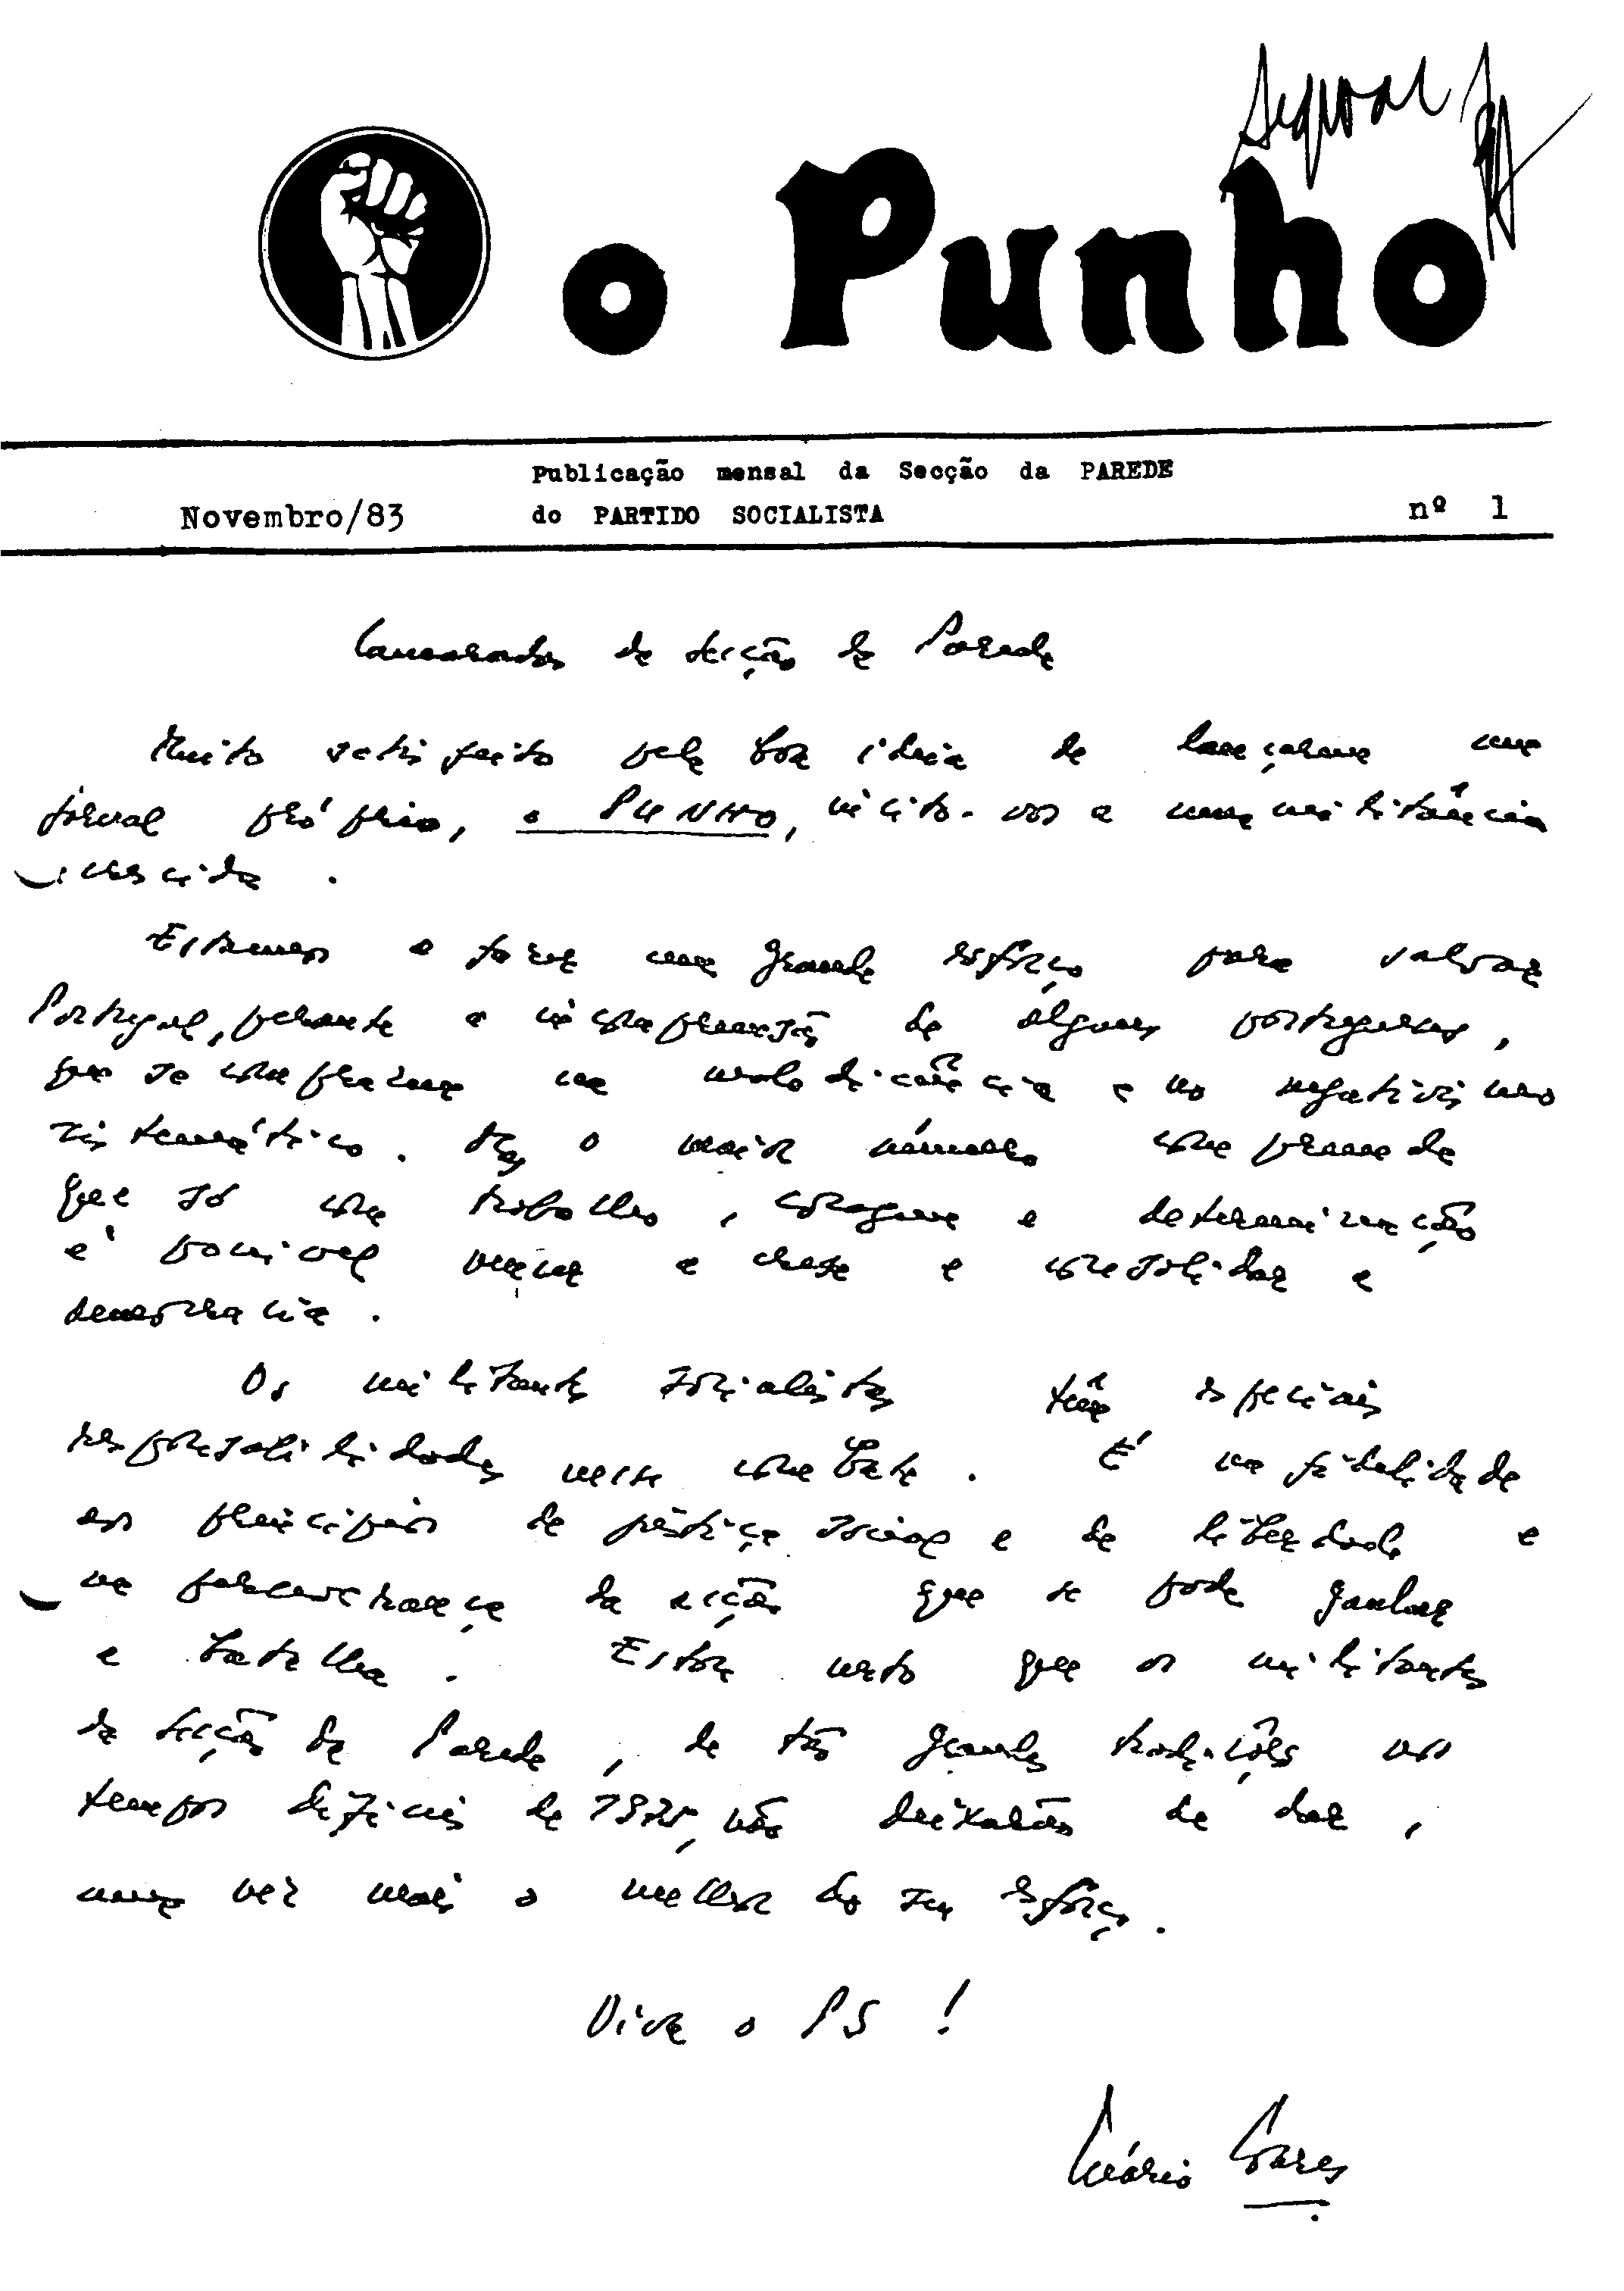 o Punho
Publicação mensal da Secção da PAREDE
Novembro/83 do PARTIDO SOCIALISTA nº 1
Camaradas da secção da Parede
Muito satisfeito pela boa ideia de lançarem um
jornal próprio, o PUNHO, incito-vos a uma militância
crescida.
Estamos a fazer um grande esforço para salvar
Portugal, perante a incompreensão de alguns portugueses,
que se comprazem na maledicência e no negativismo
sistemático. Mas o maior número compreende
que só com trabalho, coragem e determinação
é possível vencer a crise e consolidar a
democracia.
Os militantes socialistas têm especiais
responsabilidades neste combate. É na fidelidade
aos princípios de justiça social e de liberdade e
na perseverança da acção que se pode ganhar
a batalha. Estou certo que os militantes
da secção da Parede, de tão grandes tradições nos
tempos difíceis de 1975, não deixarão de dar,
uma vez mais o melhor do seu esforço.
Viva o PS!
Mário Soares